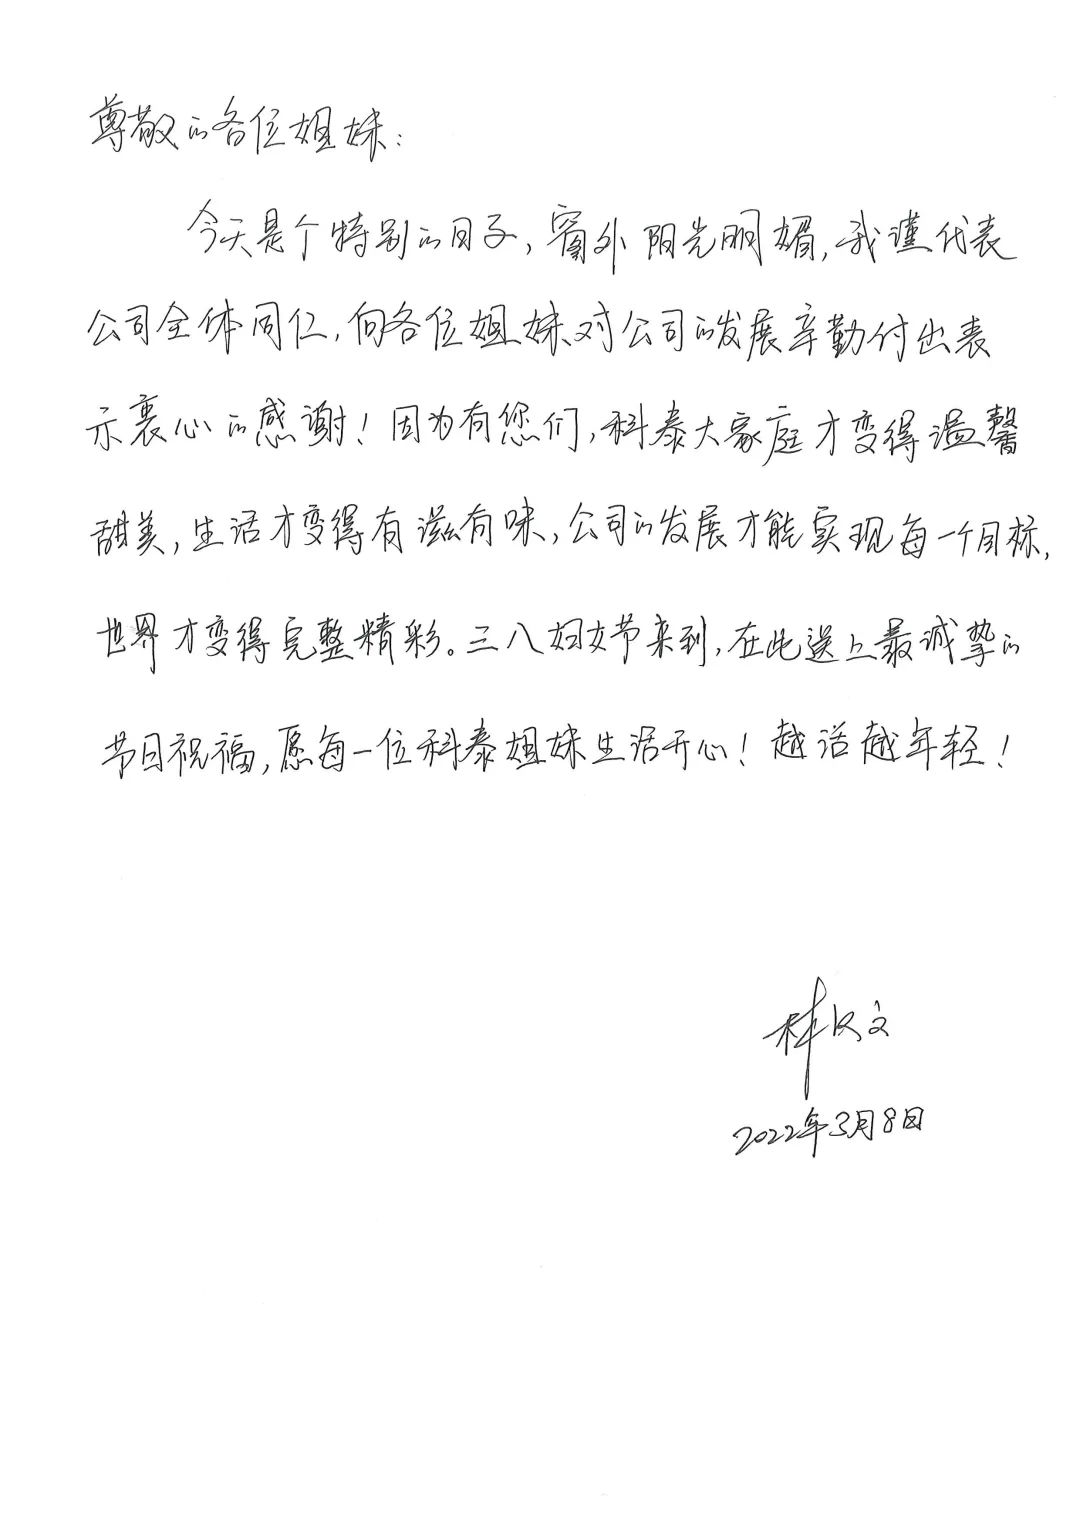 尊敬的各位姐妹:
今天是个特别的日子,窗外阳光明媚,我谨代表
公司全体同仁,向各位姐妹对公司的发展辛勤付出表
示衷心的感谢!因为有您们,科泰大家庭才变得温馨
甜美,生活才变得有滋有味,公司的发展才能实现每一个目标,
世界才变得完整精彩。三八妇女节来到,在此送上最诚挚的
节日祝福,愿每一位科泰姐妹生活开心!越活越年轻!
2022年3月8日